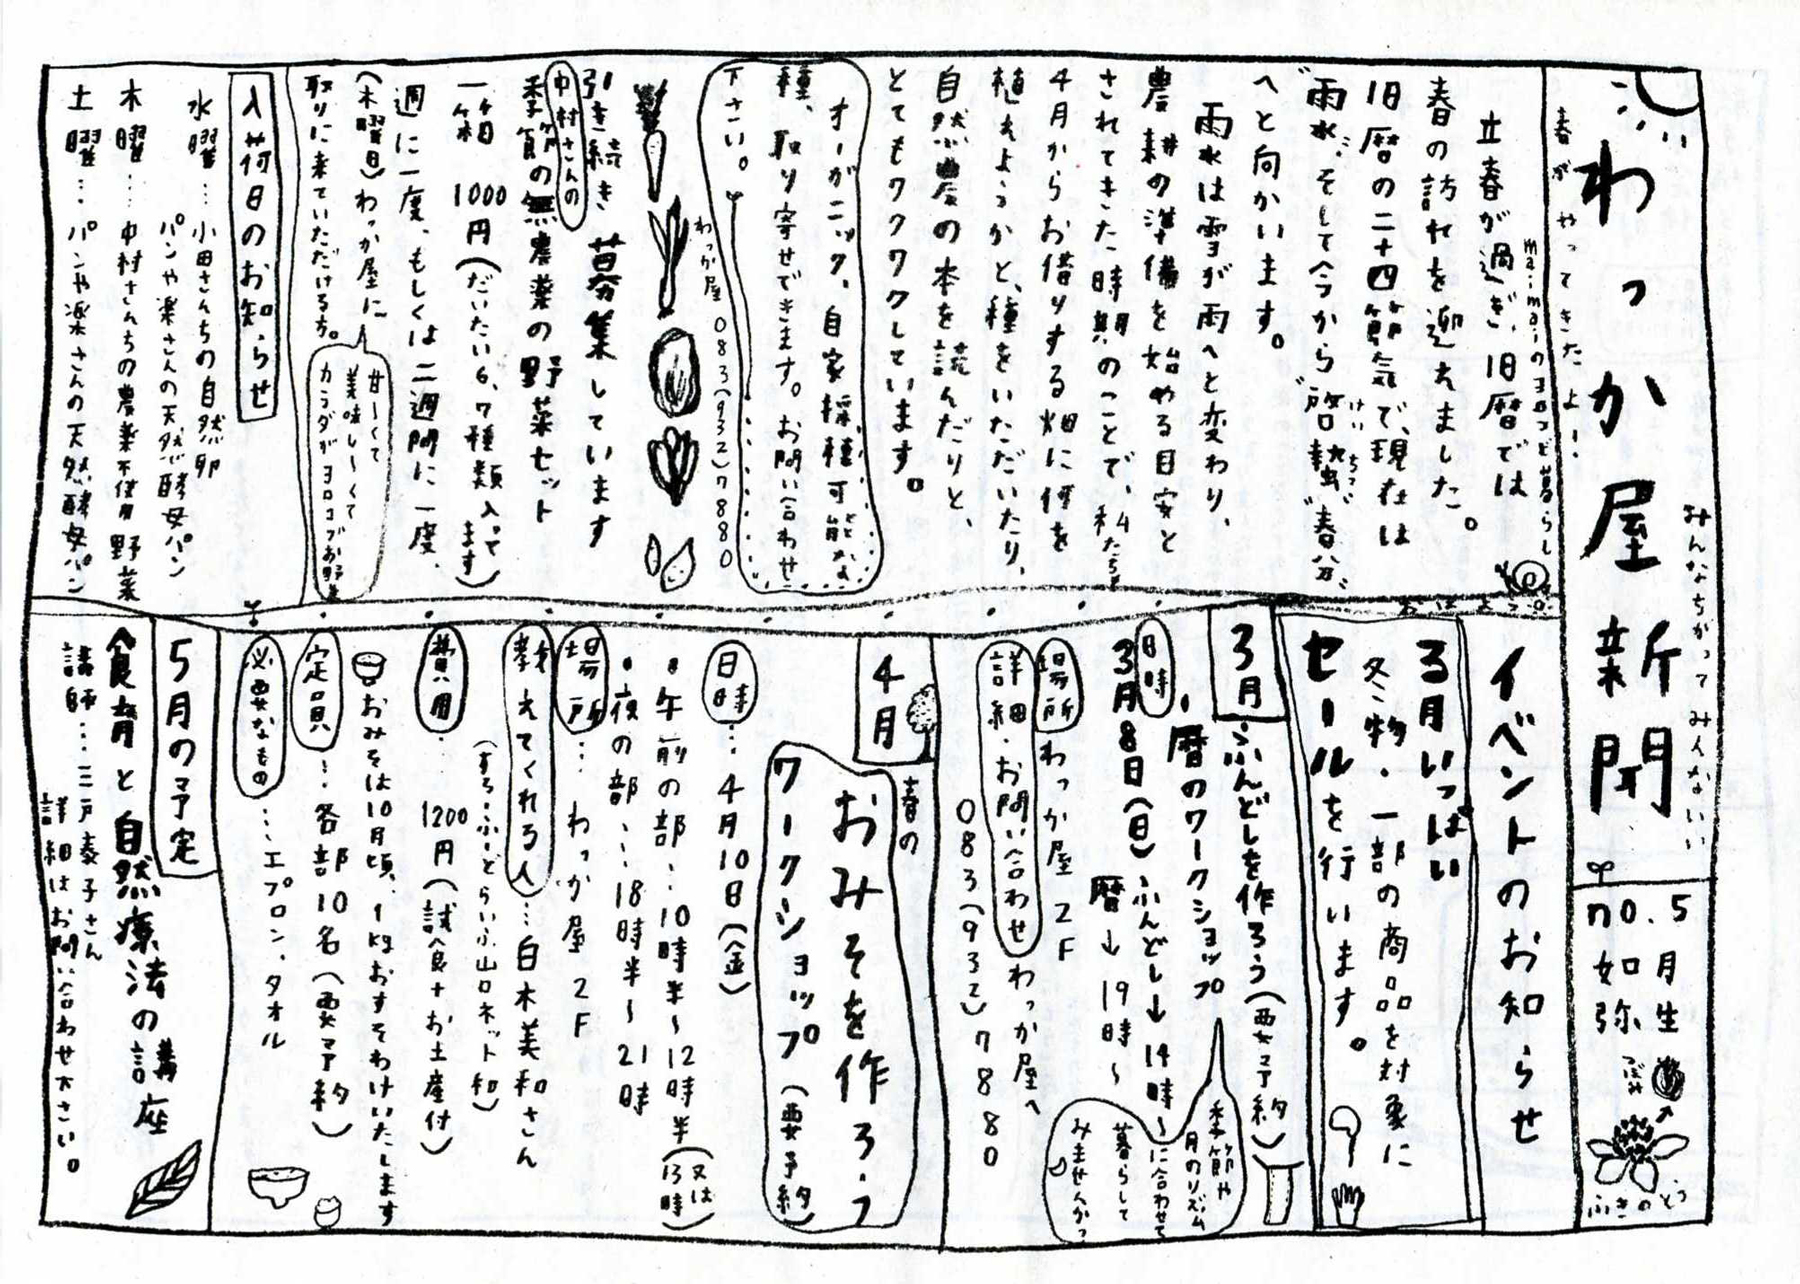 わっか屋新聞
みんなちがってみんないい
no.5
如月弥生
つぼみ
ふきのとう
春がやってきたよー!
mai・maiのヨロコビ暮らし
立春が過ぎ、旧暦では
春の訪れを迎えました。
旧暦の二十四節気で、現在は
"雨水"、そして今から"啓蟄""春分"
けいちつ
へと向かいます。
雨水は雪が雨へと変わり、
農耕の準備を始める目安と
されてきた時期のことで、私たちも
4月からお借りする畑に何を
植えようかと、種をいただいたり、
自然農の本を読んだりと、
とてもワクワクしています。
オーガニック、自家採種可能な
種、取り寄せできます。お問い合わせ
下さい。
わっか屋 083(932)7880
引き続き募集しています
中村さんの
季節の無農薬の野菜セット
一箱 1000円(だいたい6、7種類入ってます)
週に一度、もしくは二週間に一度、
(木曜日)わっか屋に
取りに来ていただける方。
甘ーくて
美味しーくて
カラダがヨロコブお野菜
入荷日のお知らせ
水曜…小田さんちの自然卵
パンや楽さんの天然酵母パン
木曜…中村さんちの農薬不使用野菜
土曜…パンや楽さんの天然酵母パン
イベントのお知らせ
3月いっぱい
冬物、一部の商品を対象に
セールを行います。
3月
・ふんどしを作ろう(要予約)
・暦のワークショップ
季節や
月のリズム
に合わせて
暮らして
みませんかっ
日時
3月8日(日)ふんどし→14時〜
暦→19時〜
場所 わっか屋2F
詳細・お問い合わせ わっか屋へ
083(932)7880
4月
春の
おみそを作ろう
ワークショップ(要予約)
日時…4月10日(金)
・午前の部…10時半〜12時半(又は13時)
・夜の部…18時半〜21時
場所…わっか屋2F
教えてくれる人…白木美和さん
(すろーふーどらいふ山口ネット和)
費用…1200円(試食+お土産付)
おみそは10月頃、1kgおすそわけいたします
定員…各部10名(要予約)
必要なもの…エプロン、タオル
5月の予定
食育と自然療法の講座
講師…三戸泰子さん
詳細はお問い合わせ下さい。